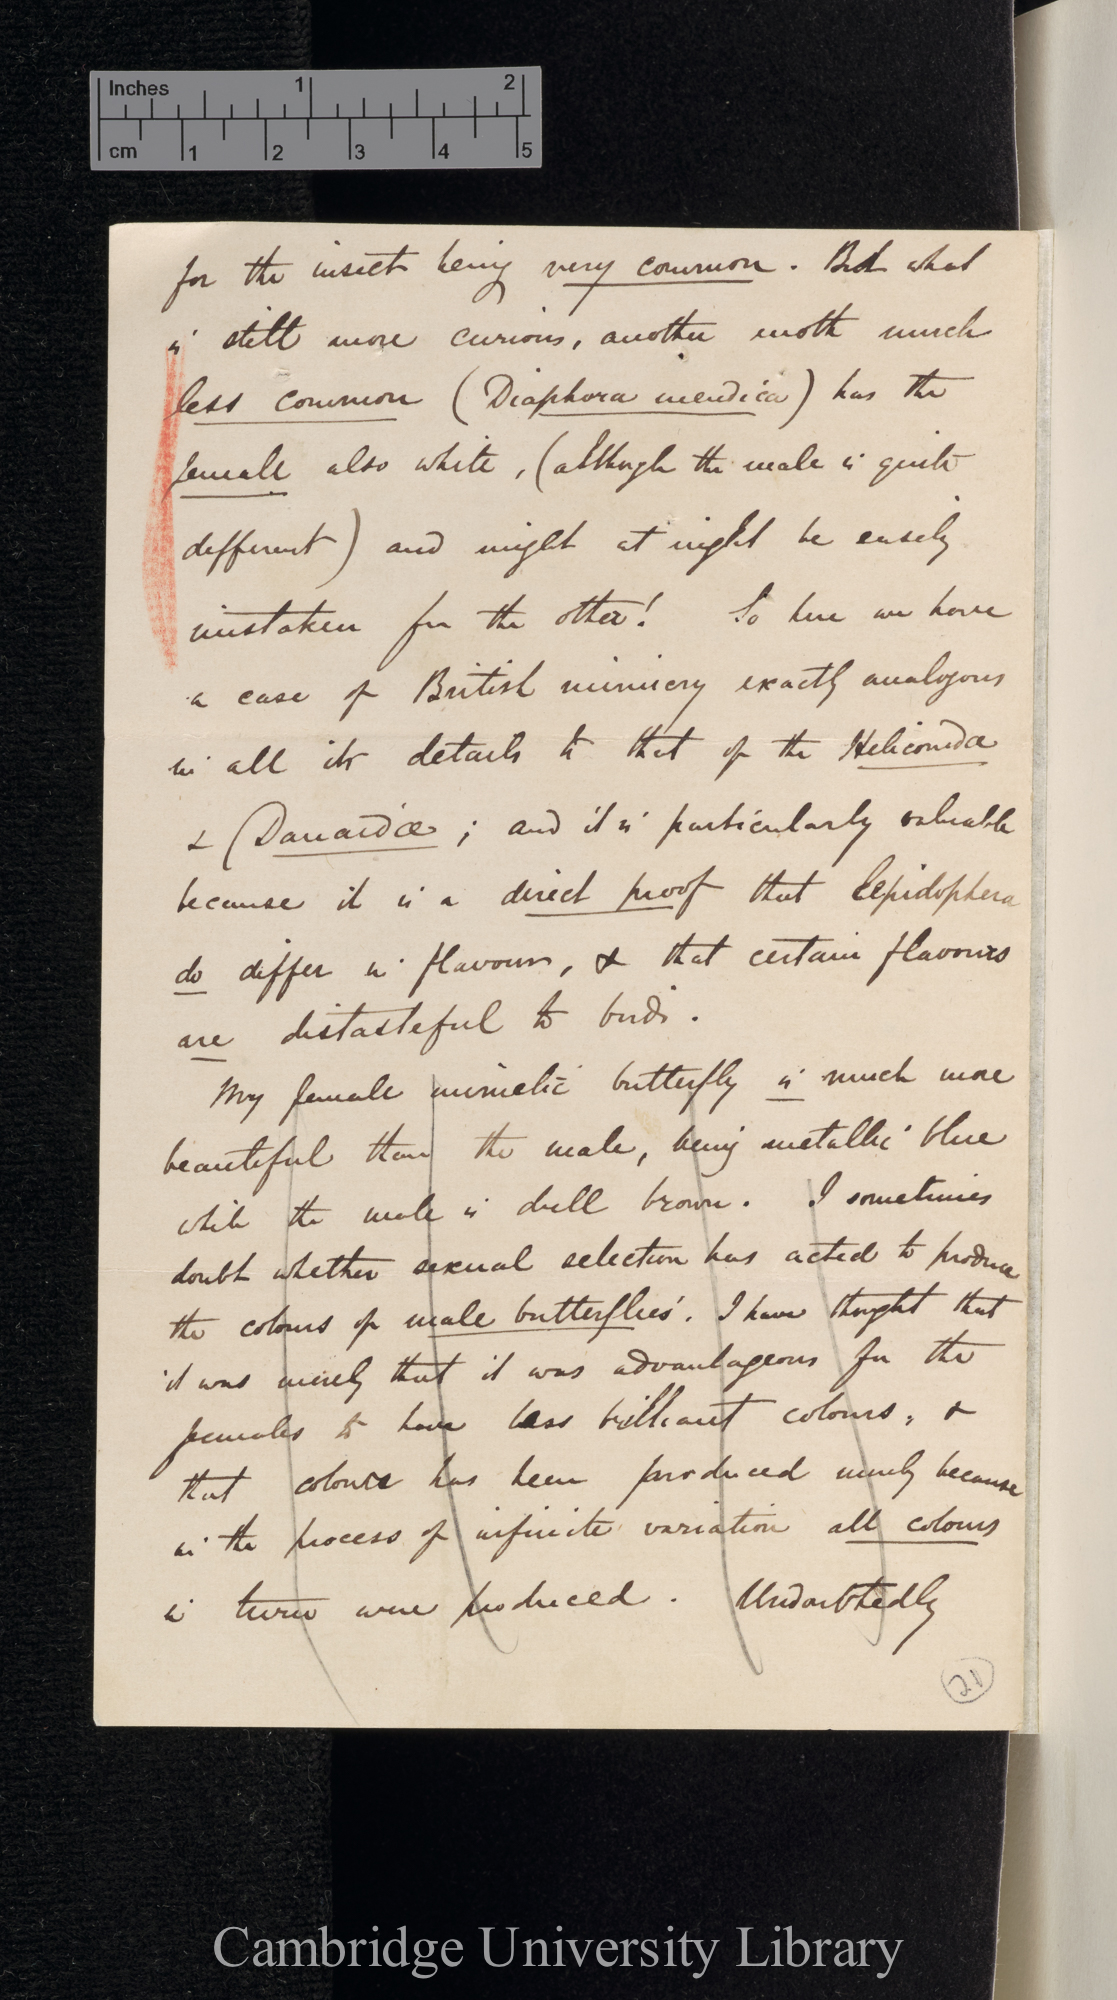 Inches 1 2
cm 1 2 3 4 5
for the insect being very common. But what
is still more curious, another moth much
less common (Diaphora mendica) has the
female also white, (although the male is quite
different) and might at night be easily
mistaken for the other! So here we have
a case of British mimicry exactly analogous
in all its details to that of the Heliconidæ
& (Danaidæ; and it is particularly valuable
because it is a direct proof that Lepidoptera
do differ in flavour, & that certain flavours
are distasteful to birds.
My female mimetic butterfly is much more
beautiful than the male, being metallic blue
while the male is dull brown. I sometimes
doubt whether sexual selection has acted to produce
the colours of male butterflies. I have thought that
it was merely that it was advantageous for the
females to have less brilliant colours, &
that colour has been produced merely because
in the process of infinite variation all colours
in turn were produced. Undoubtedly
21
Cambridge University Library